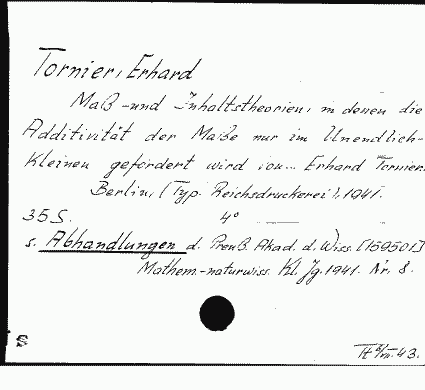 Tornier, Erhard
Maß- und Inhaltstheorien, in denen die
Additivität der Maße nur im Unendlich-
Kleinen gefordert wird von... Erhard Tornier.
Berlin, (Typ. Reichsdruckerei), 1941.
35 S. 4°
s. Abhandlungen d. Preuß. Akad. d. Wiss. [159501]
Mathem.-naturwiss. Kl. Jg. 1941. Nr. 8.
43.